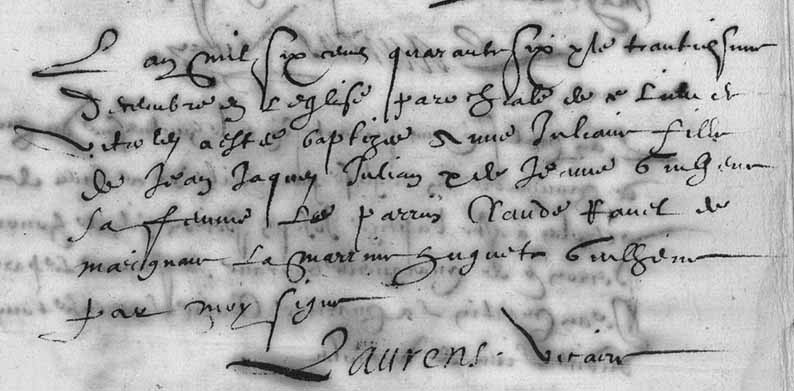 L an mil six cens quarante six & le trantiesme
decembre en Leglise parochiale de ce lieu de
Vitrolles a esté baptizée Anne Juliane fille
de Jean Jaques Julian & de Jeanne Guilhene
sa femme Le parrin Claude Ravel de
marignane La marrine huguete Guilhene
par moy signe
Laurens. Vicaire